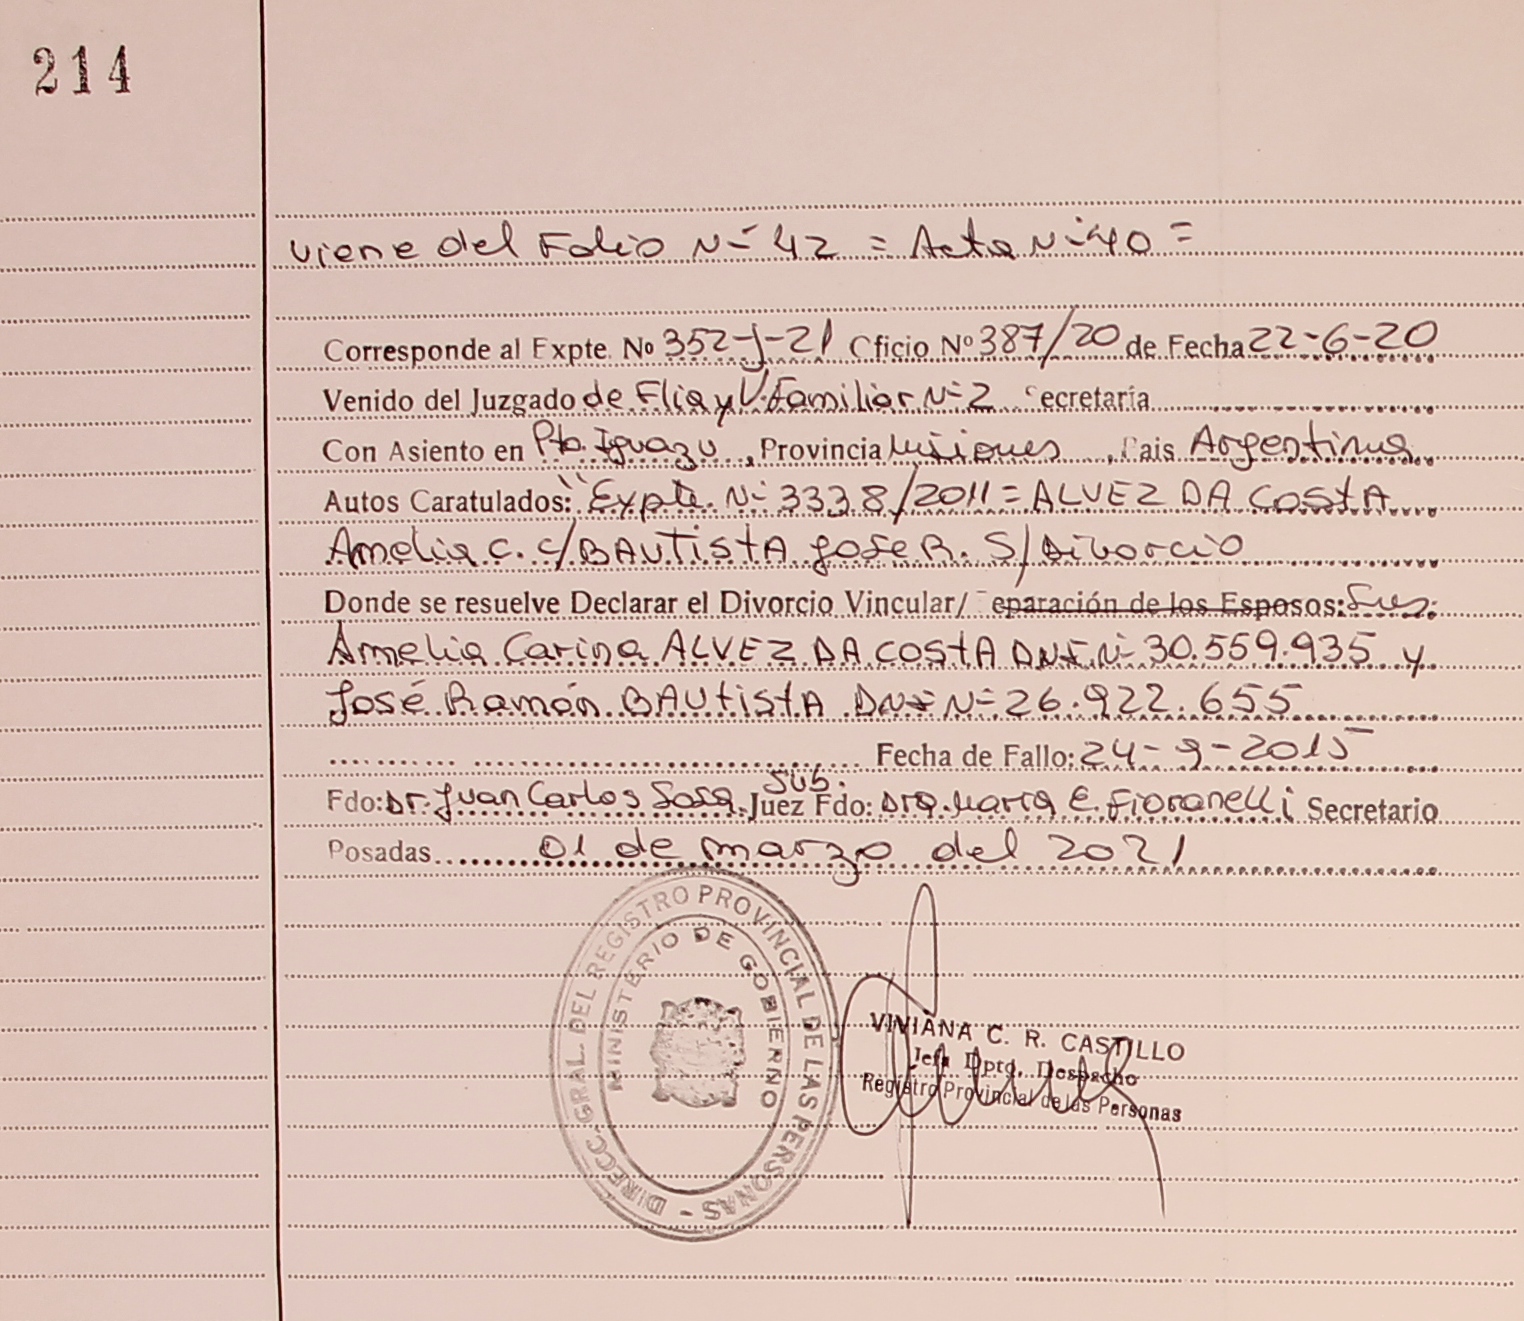 214
viene del Folio Nº 42 = Acta Nº 40 =
Corresponde al Expte. Nº 352-J-21 Oficio Nº 387/20 de Fecha 22-6-20
Venido del Juzgado de Flia y V. Familiar Nº 2 Secretaría
Con Asiento en Pto. Iguazu, Provincia Misiones, Pais Argentina
Autos Caratulados: "Expte. Nº 3338/2011 = ALVEZ DA COSTA
Amelia C. c/ BAUTISTA Jose R. S/ Divorcio
Donde se resuelve Declarar el Divorcio Vincular/ Separación de los Esposos: Sres:
Amelia Carina ALVEZ DA COSTA DNI Nº 30.559.935 y
José Ramón BAUTISTA DNI Nº 26.922.655
Fecha de Fallo: 24-9-2015
Sub.
Fdo: Dr. Juan Carlos Sosa Juez Fdo: Dra. Maria E. Fioranelli Secretario
Posadas 01 de marzo del 2021
DIRECC. GRAL. DEL REGISTRO PROVINCIAL DE LAS PERSONAS -
MINISTERIO DE GOBIERNO
VIVIANA C. R. CASTILLO
Jefa Dpto. Despacho
Registro Provincial de las Personas